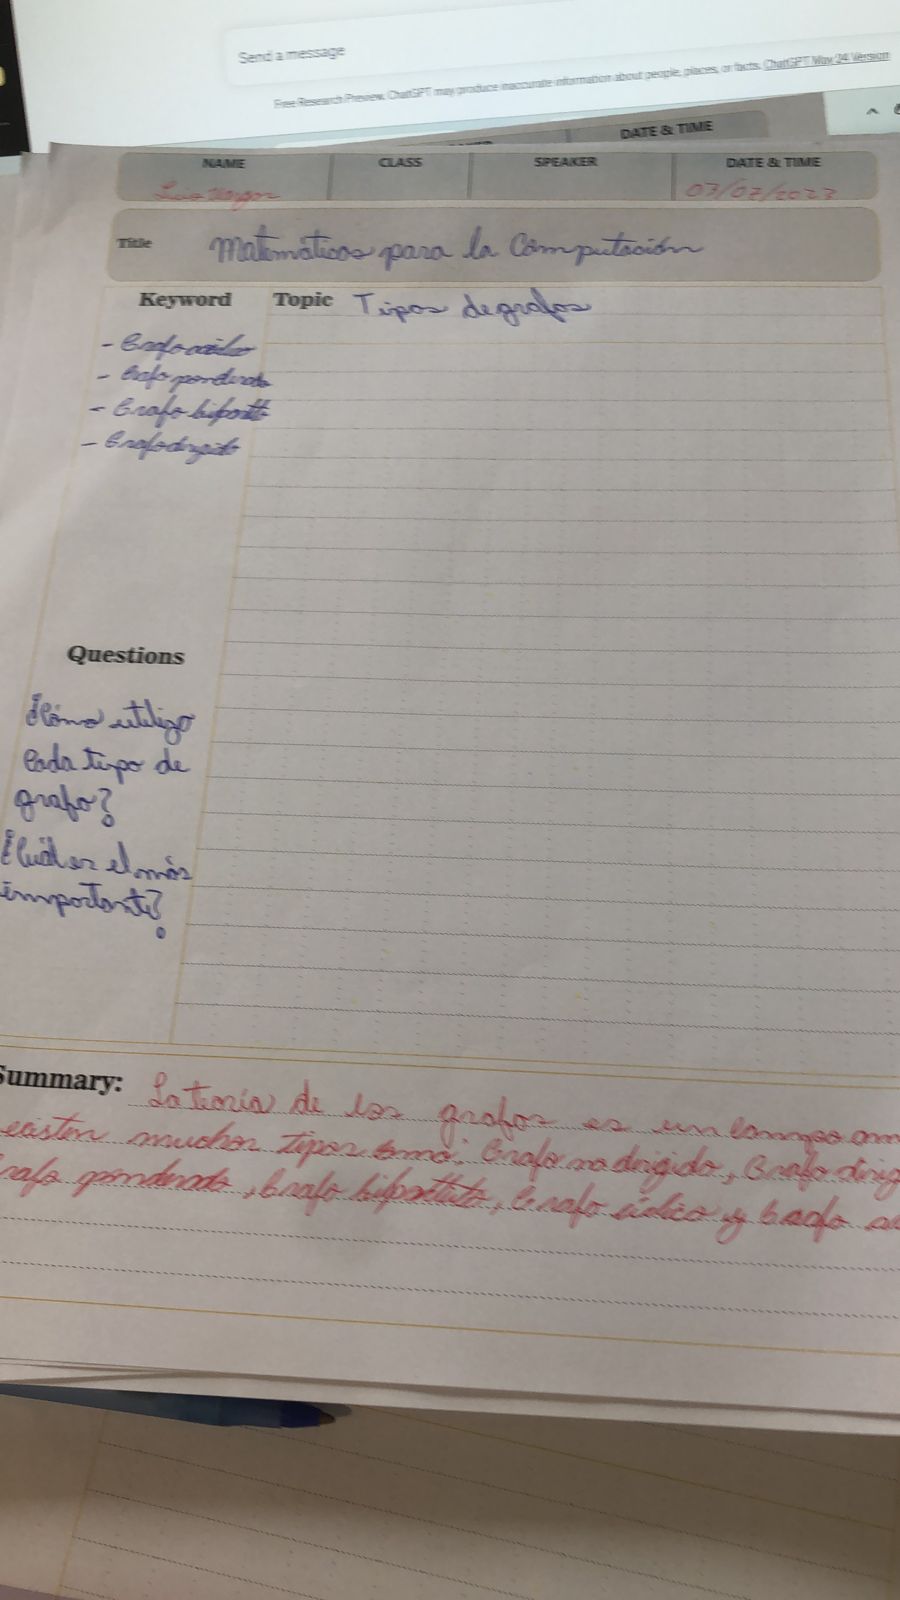 Send a message
Free Research Preview. ChatGPT may produce inaccurate information about people, places, or facts. ChatGPT May 24 Version
DATE & TIME
NAME CLASS SPEAKER DATE & TIME
Luis Vargas 03/07/2023
Title Matemáticas para la Computación
Keyword Topic Tipos de grafos
- Grafo cíclico
- Grafo ponderado
- Grafo bipartito
- Grafo dirigido
Questions
¿Cómo utilizo
cada tipo de
grafo?
¿Cuál es el más
importante?
Summary: La teoría de los grafos es un campo am
existen muchos tipos como: Grafo no dirigido, Grafo dirig
rafo ponderado, Grafo bipartito, Grafo cíclico y Grafo a